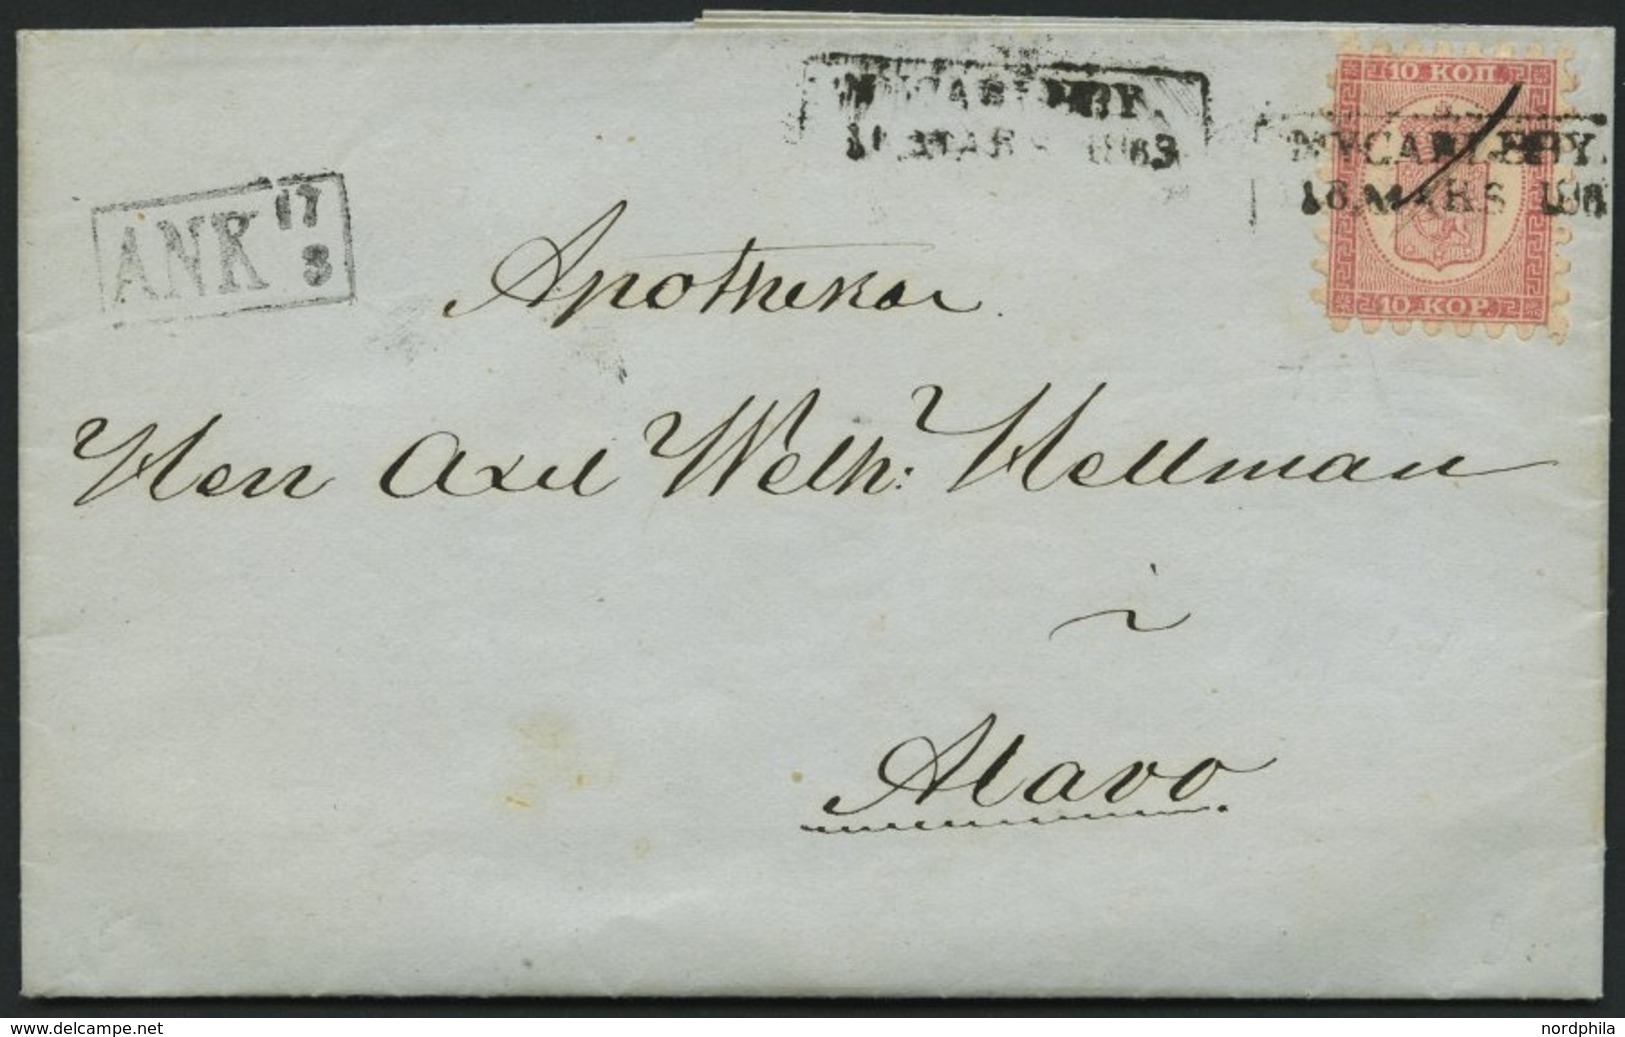 NYCARLEBY.
10 КОП.
NYCARLEBY.
16 MARS 186
10 KOP.
ANK 17/3
Apothekar
Herr Axel Welh: Hellman
i
Alavo.
www.delcampe.net
nordphila